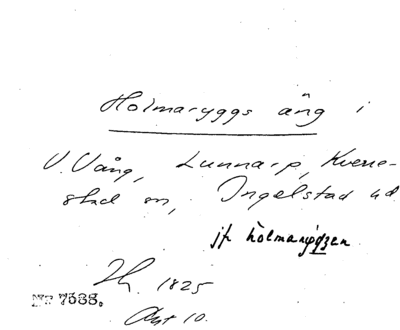 Holmaryggs äng i
V. Vång, Lunnarp, Kverre-
stad sn, Ingelstad hd
jfr holmaryggen
1825
Akt 10.
Nr 7588.